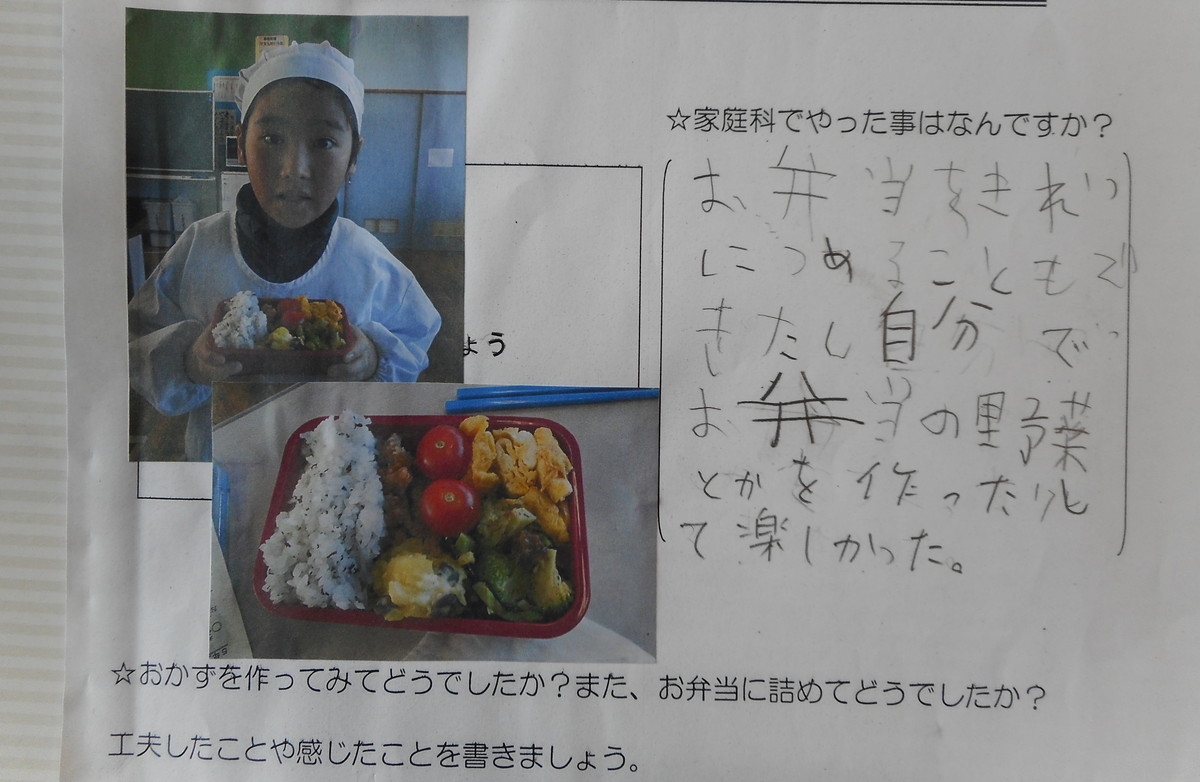 ☆家庭科でやった事はなんですか？
お弁当をきれい
につめることもで
きたし自分で
お弁当の野菜
とかを作ったりし
て楽しかった。
ょう
☆おかずを作ってみてどうでしたか？また、お弁当に詰めてどうでしたか？
工夫したことや感じたことを書きましょう。